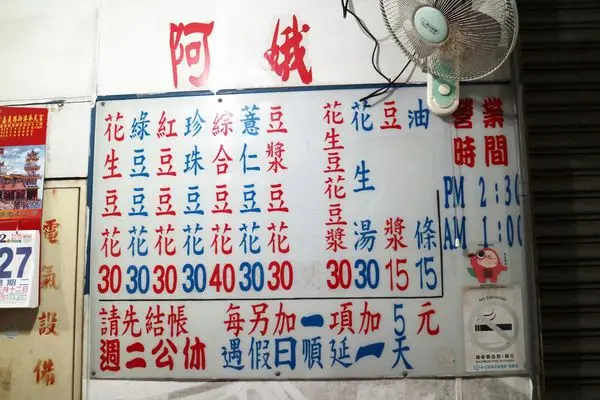 阿娥
花生豆花30
綠豆豆花30
紅豆豆花30
珍珠豆花30
綜合豆花40
薏仁豆花30
豆漿豆花30
花生豆花豆漿30
花生湯30
豆漿15
油條15
營業時間
PM 2:30
AM 1:00
請先結帳 每另加一項加5元
週二公休 遇假日順延一天
27
電氣設備